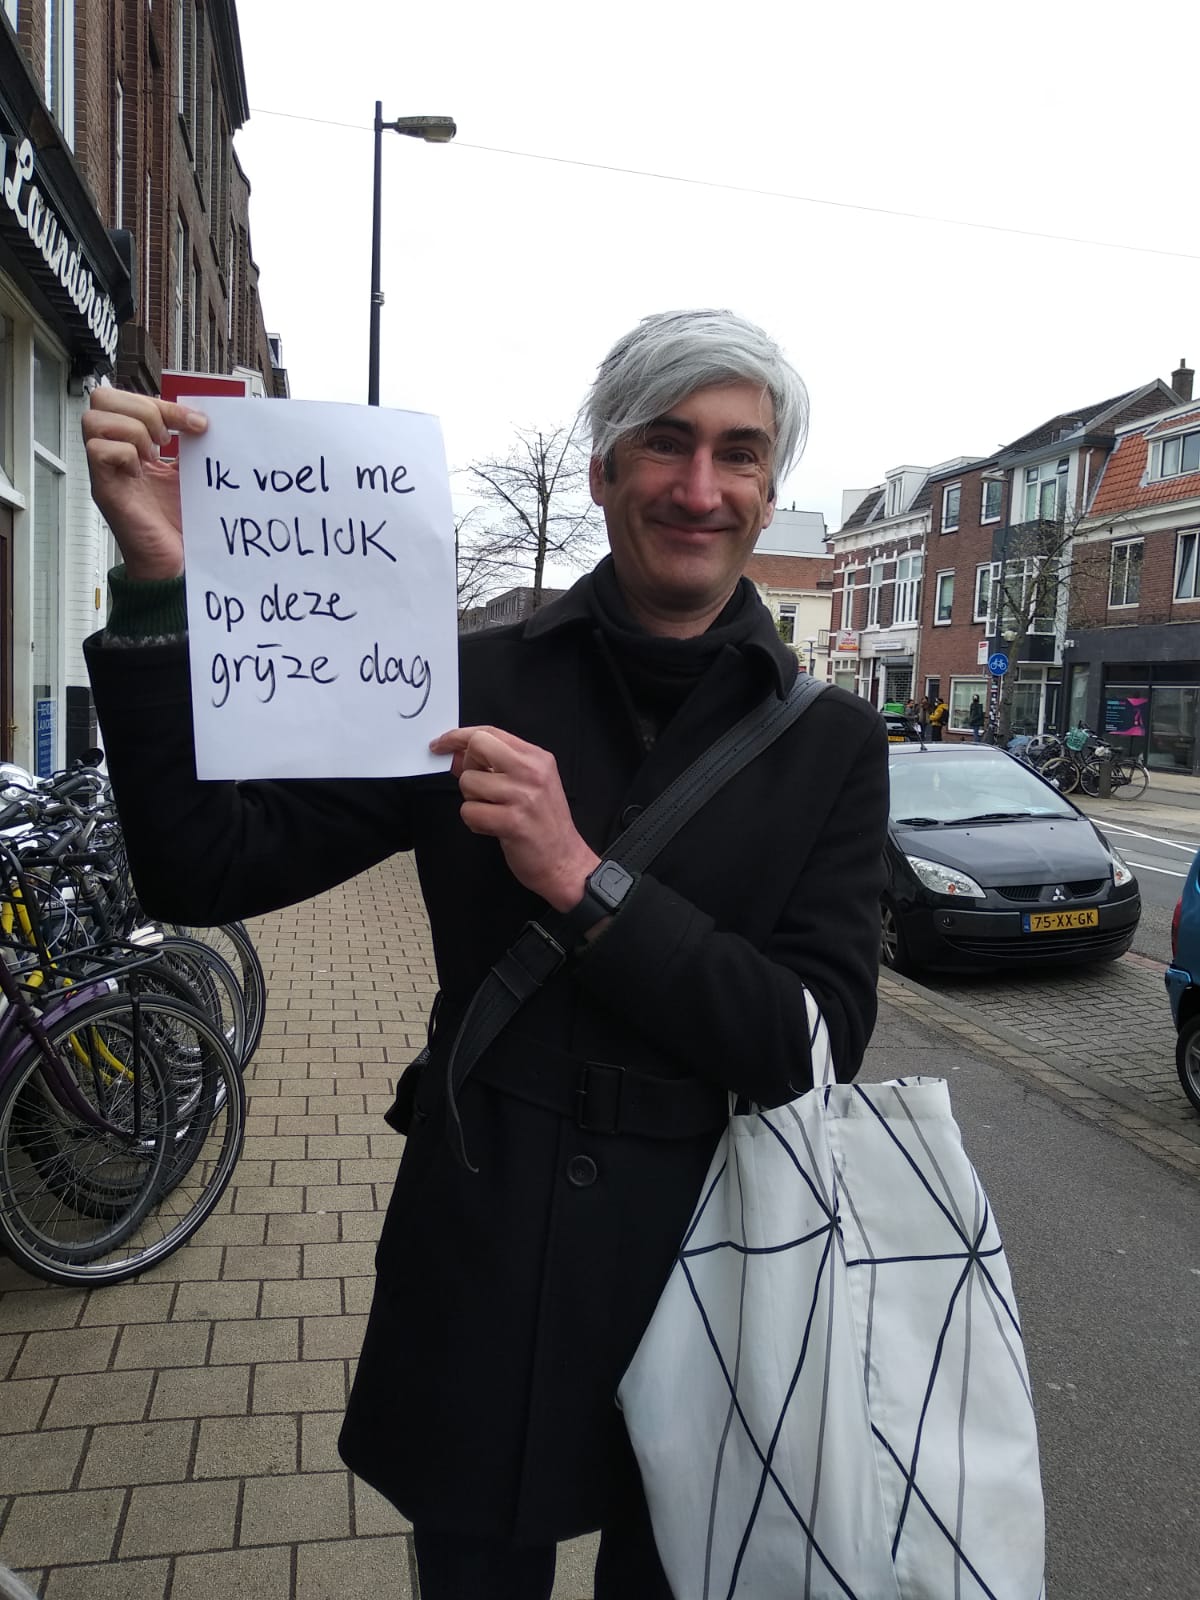 Launderette
Ik voel me
VROLIJK
op deze
grijze dag
75-XX-GK